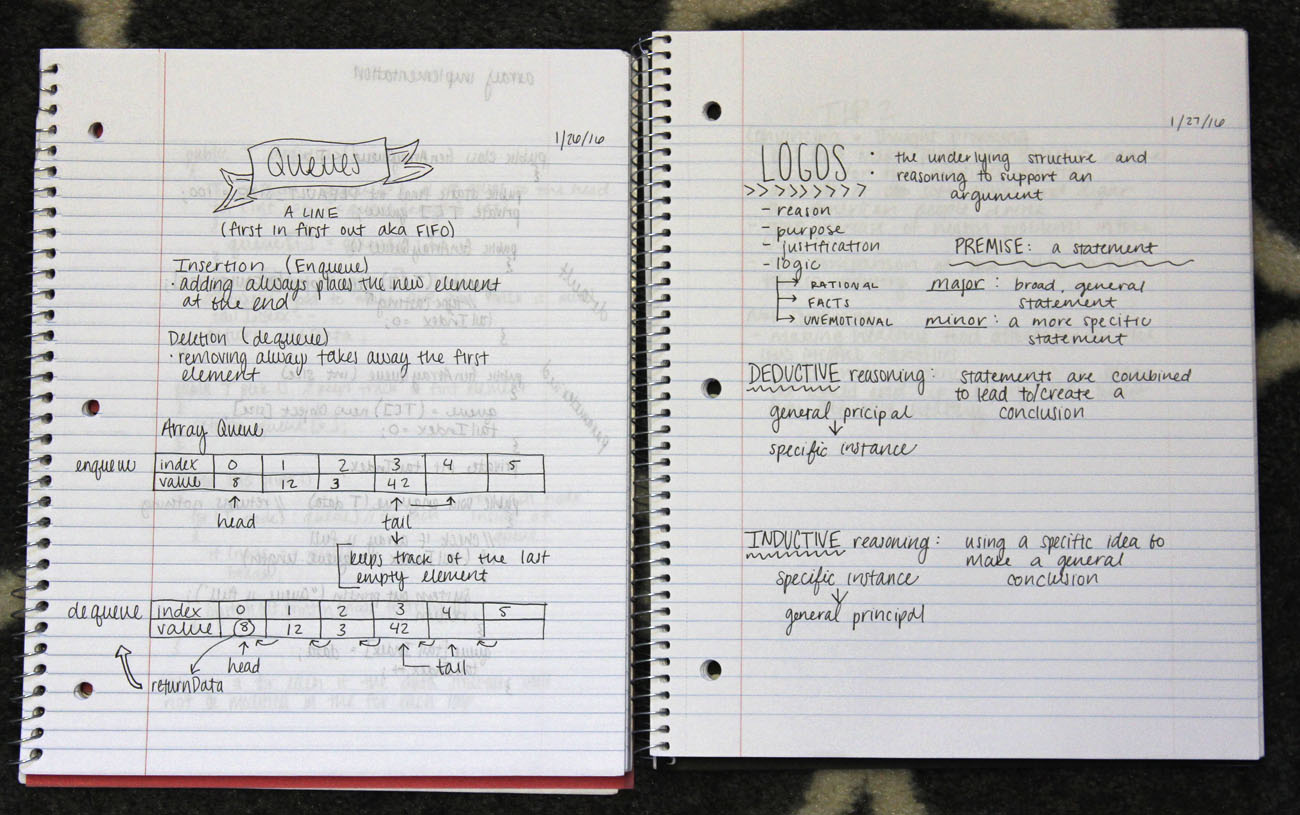 1/26/16
Queues
A LINE
(first in first out aka FIFO)
Insertion (Enqueue)
· adding always places the new element
at the end
Deletion (dequeue)
· removing always takes away the first
element
Array Queue
enqueue index 0 1 2 3 4 5
value 8 12 3 42
head tail
keeps track of the last
empty element
dequeue index 0 1 2 3 4 5
value 8 12 3 42
head tail
returnData
1/27/16
LOGOS : the underlying structure and
reasoning to support an
argument
>>>>>>>>>
- reason
- purpose
- justification
- logic
→ RATIONAL
→ FACTS
→ UNEMOTIONAL
PREMISE: a statement
major: broad, general
statement
minor: a more specific
statement
DEDUCTIVE reasoning: statements are combined
to lead to/create a
conclusion
general pricipal
↓
specific instance
INDUCTIVE reasoning: using a specific idea to
make a general
conclusion
specific instance
↓
general principal